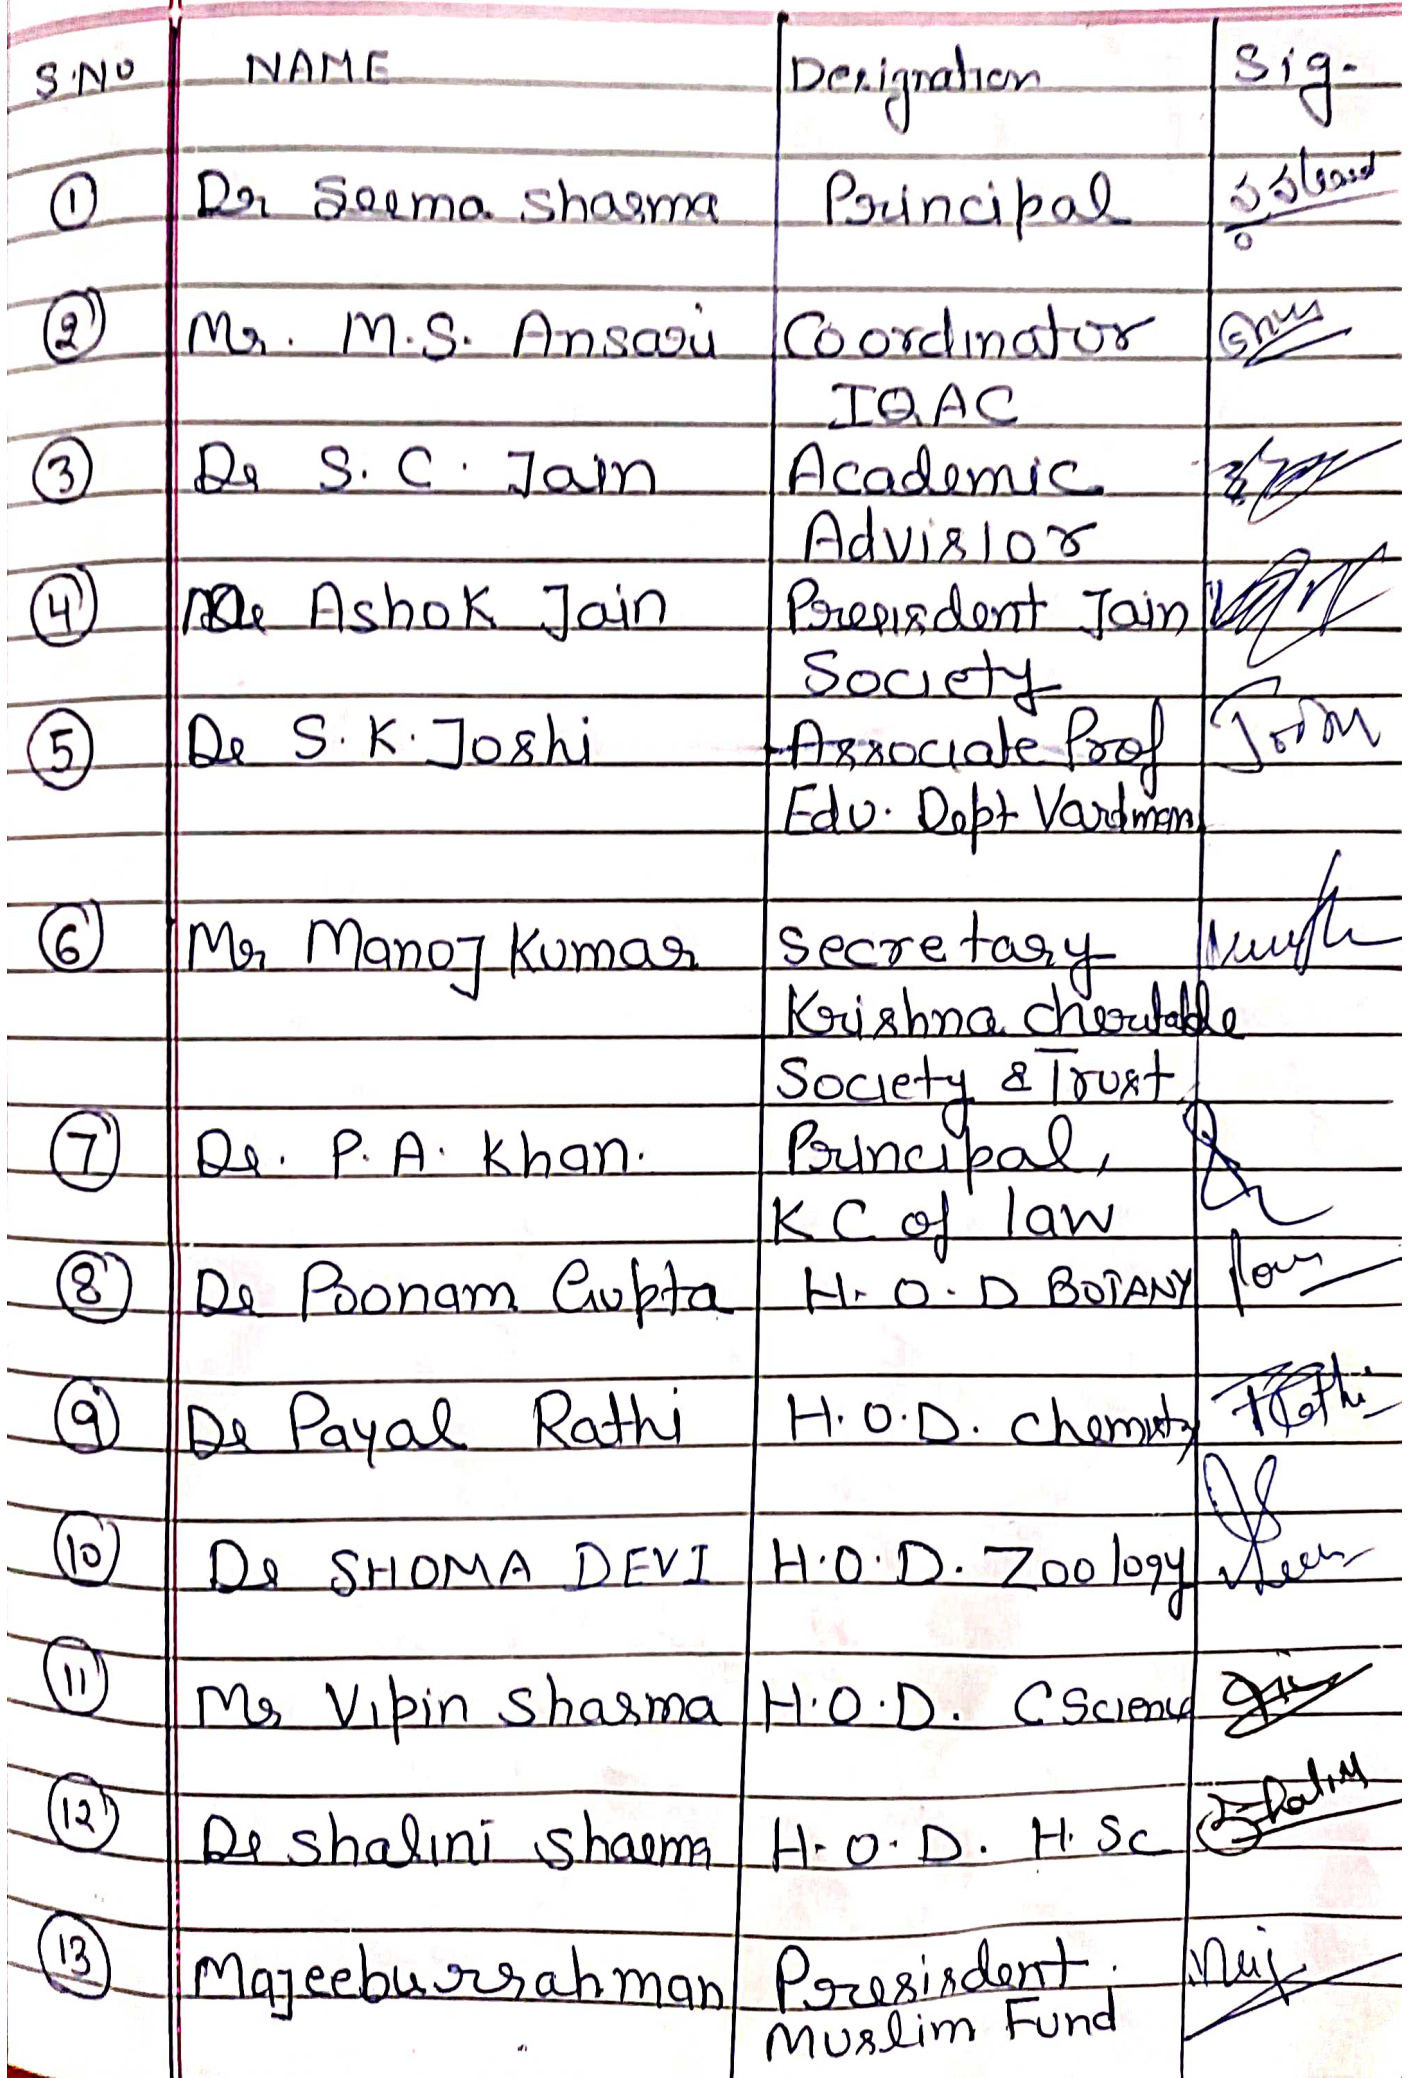 S.NO NAME Designation Sig.
1 Dr Seema Sharma Principal
2 Mr. M.S. Ansari Coordinator
IQAC
3 Dr S. C. Jain Academic
Advisior
4 Ashok Jain Presisdent Jain
Society
5 Dr S. K. Joshi Associate Prof
Edu. Dept Vardman
6 Mr Manoj Kumar Secretary
Krishna
Society & Trust
7 Dr. P. A. Khan. Principal,
K C of law
8 Dr Poonam Gupta H. O. D BOTANY
9 Dr Payal Rathi H. O. D. Rathi
10 Dr SHOMA DEVI H.O.D. Zoology
11 Mr Vipin Sharma H.O.D. C Science
12 Dr Shalini Sharma H.O.D. H. Sc
13 Majeeburrahman Presisdent.
Muslim Fund